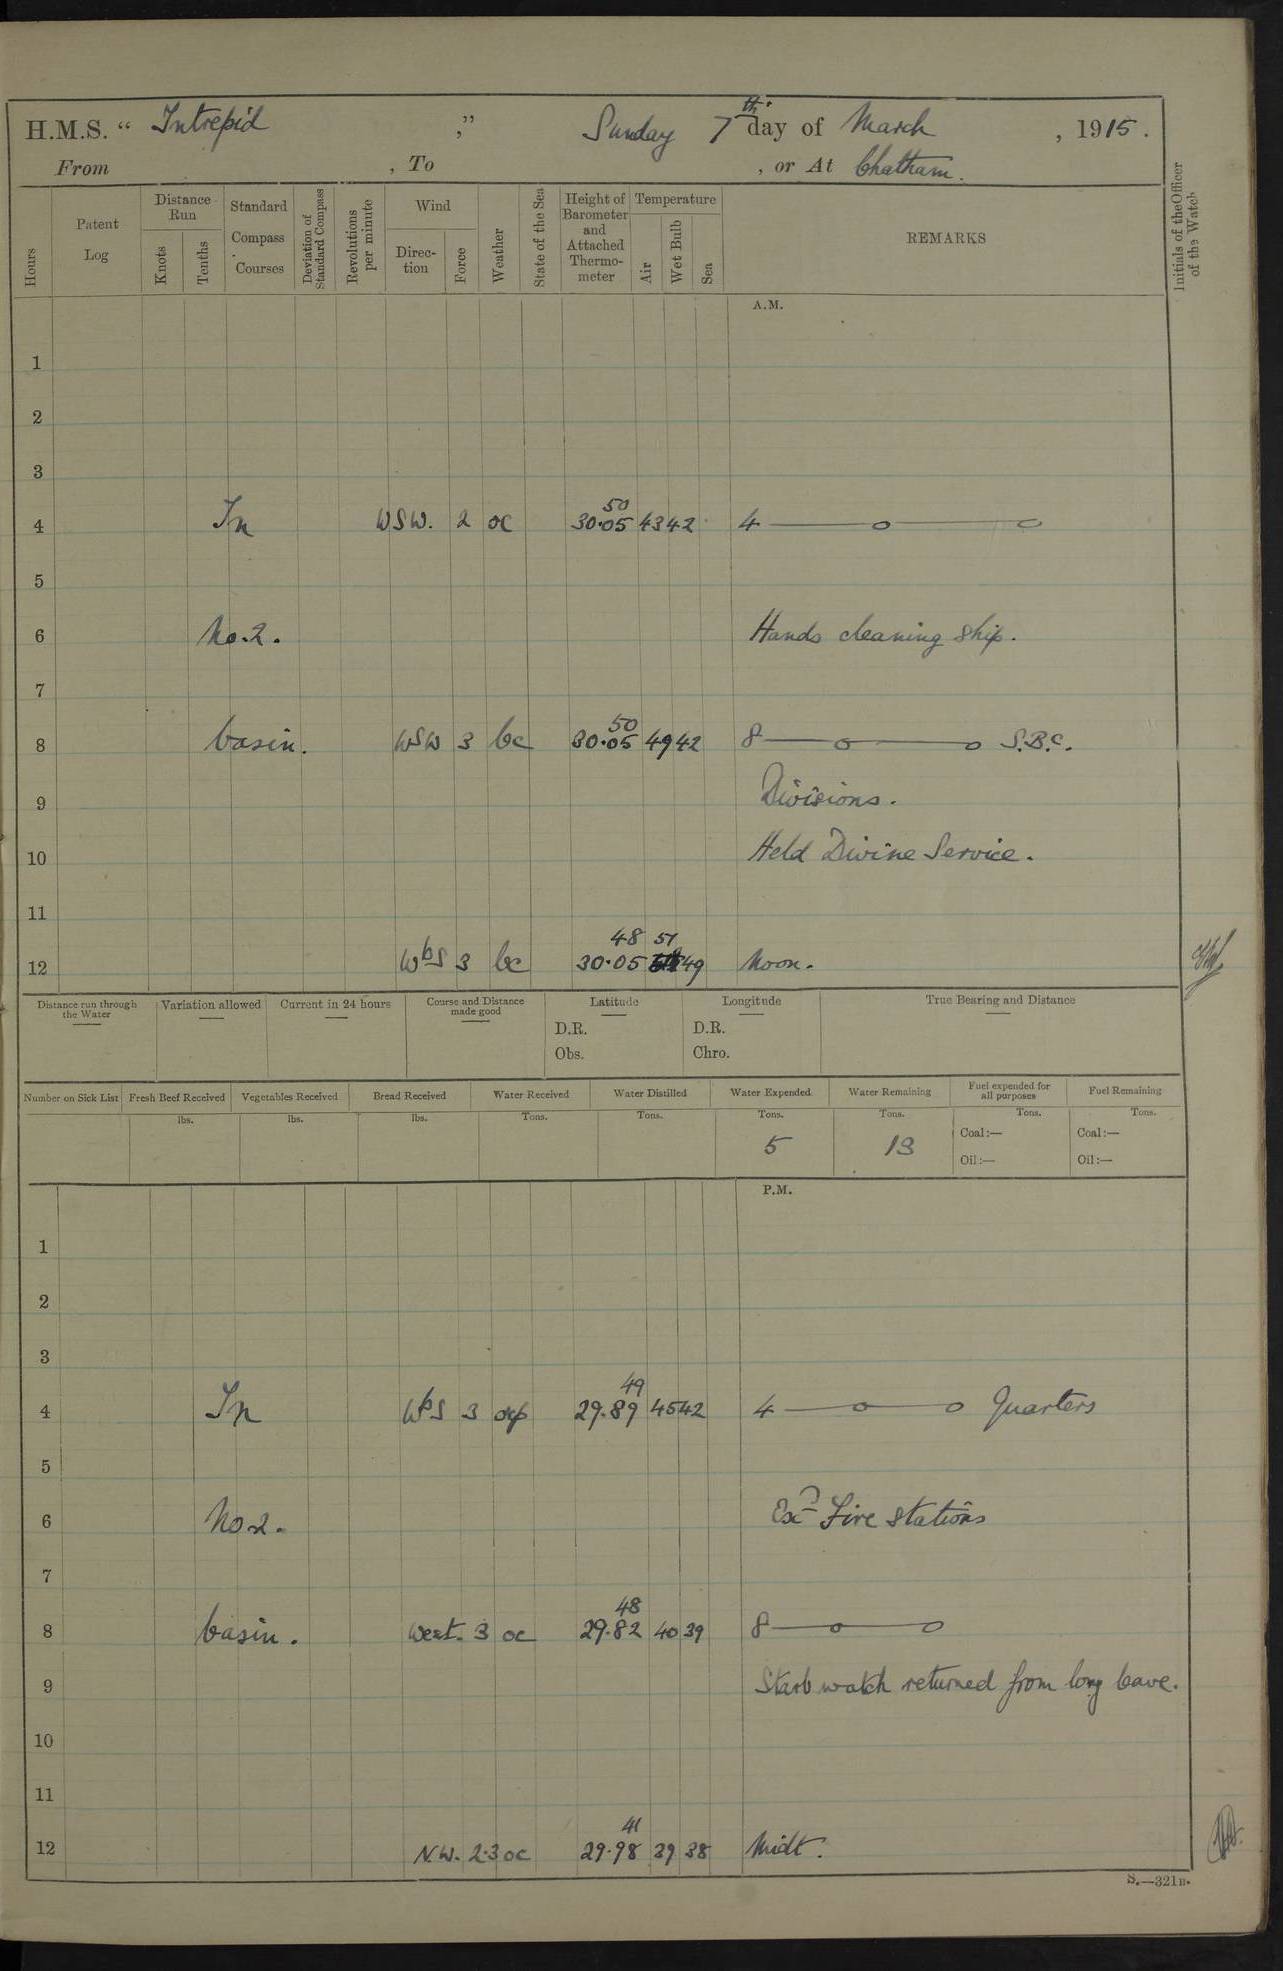 H.M.S. “ Intrepid ,” Sunday 7th day of March , 1915 .
From , To , or At Chatham.
Hours Patent Log Distance Run Knots Tenths Standard Compass Courses Deviation of Standard Compass Revolutions per minute Wind Direction Force Weather State of the Sea Height of Barometer and Attached Thermometer Temperature Air Wet Bulb Sea REMARKS Initials of the Officer of the Watch
A.M.
1
2
3
50
4 In WSW. 2 oc 30.05 43 42 4 —o—o
5
6 No. 2. Hands cleaning ship.
7
50
8 basin. WSW 3 bc 30.05 49 42 8 —o—o S.B.C.
9 Divisions.
10 Held Divine Service.
11
48 51
12 WbS 3 bc 30.05 49 Noon.
Distance run through the Water Variation allowed Current in 24 hours Course and Distance made good Latitude Longitude True Bearing and Distance
D.R. D.R.
Obs. Chro.
Number on Sick List Fresh Beef Received Vegetables Received Bread Received Water Received Water Distilled Water Expended Water Remaining Fuel expended for all purposes Fuel Remaining
lbs. lbs. lbs. Tons. Tons. Tons. Tons. Tons. Tons.
5 13 Coal:— Coal:—
Oil:— Oil:—
P.M.
1
2
3
49
4 In WbS 3 ocp 29.89 45 42 4 —o—o Quarters
5
6 No 2. Exd Fire stations
7
48
8 basin. West. 3 oc 29.82 40 39 8 —o—o
9 Starb watch returned from long leave.
10
11
41
12 N.W. 2.3 oc 29.98 39 38 Midt.
S.—321B.